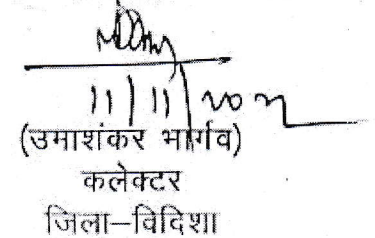 11/11/2022
(उमाशंकर भार्गव)
कलेक्टर
जिला–विदिशा